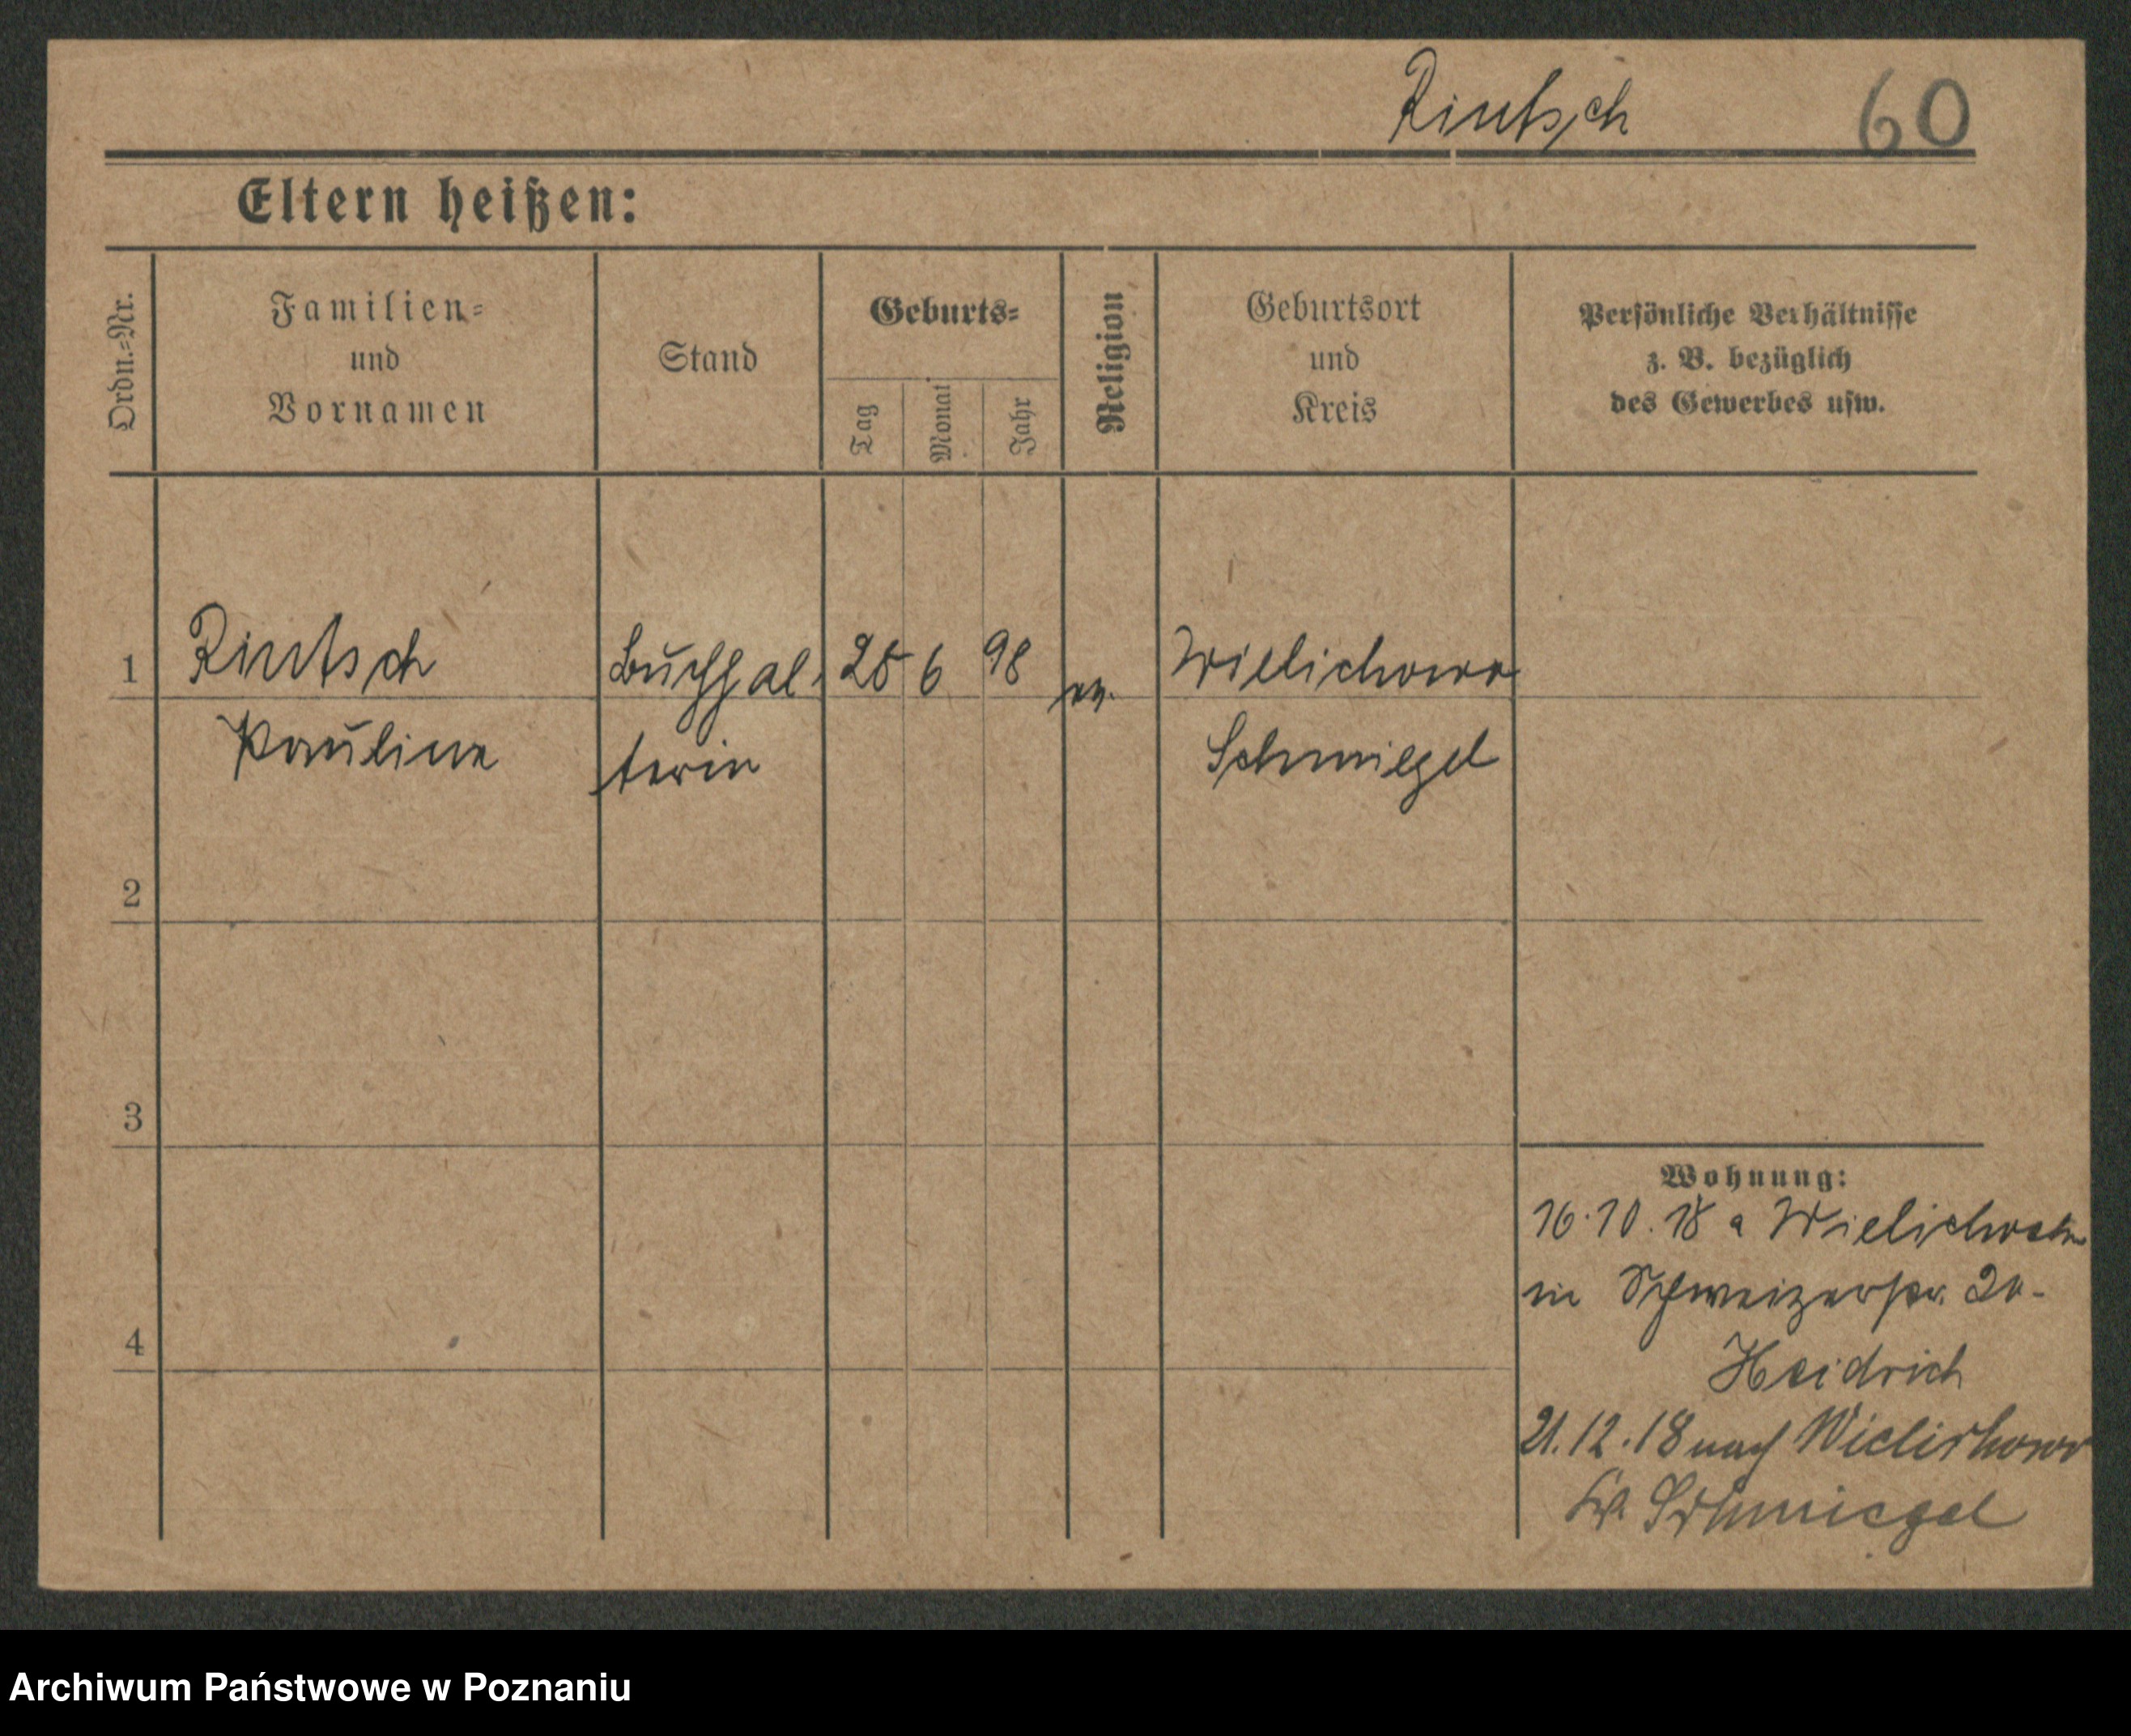 Rintsch 60
Eltern heißen:
Ordn.-Nr.
Familien-
und
Vornamen
Stand
Geburts-
Tag
Monat
Jahr
Religion
Geburtsort
und
Kreis
Persönliche Verhältnisse
z. B. bezüglich
des Gewerbes usw.
1 Rintsch Buchhal- 25 6 98 ev. Wielichowo
Pauline terin Schmiegel
2
3
4
Wohnung:
16.10.18 a Wielichowo
in Schweizerstr. 20-
Heidrich
21.12.18 nach Wielichowo
Kr. Schmiegel
Archiwum Państwowe w Poznaniu